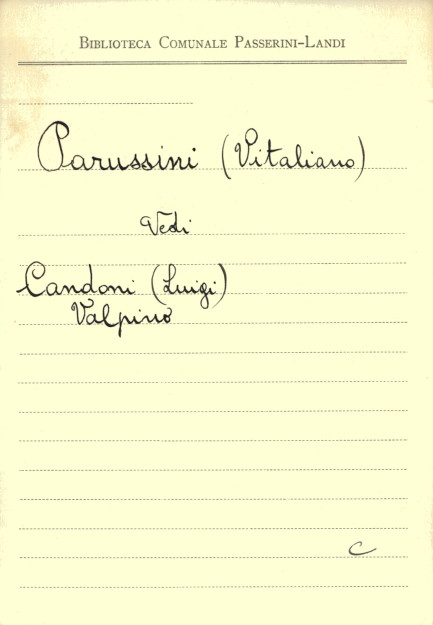 BIBLIOTECA COMUNALE PASSERINI-LANDI
Parussini (Vitaliano)
Vedi
Candoni (Luigi)
Valpino
C